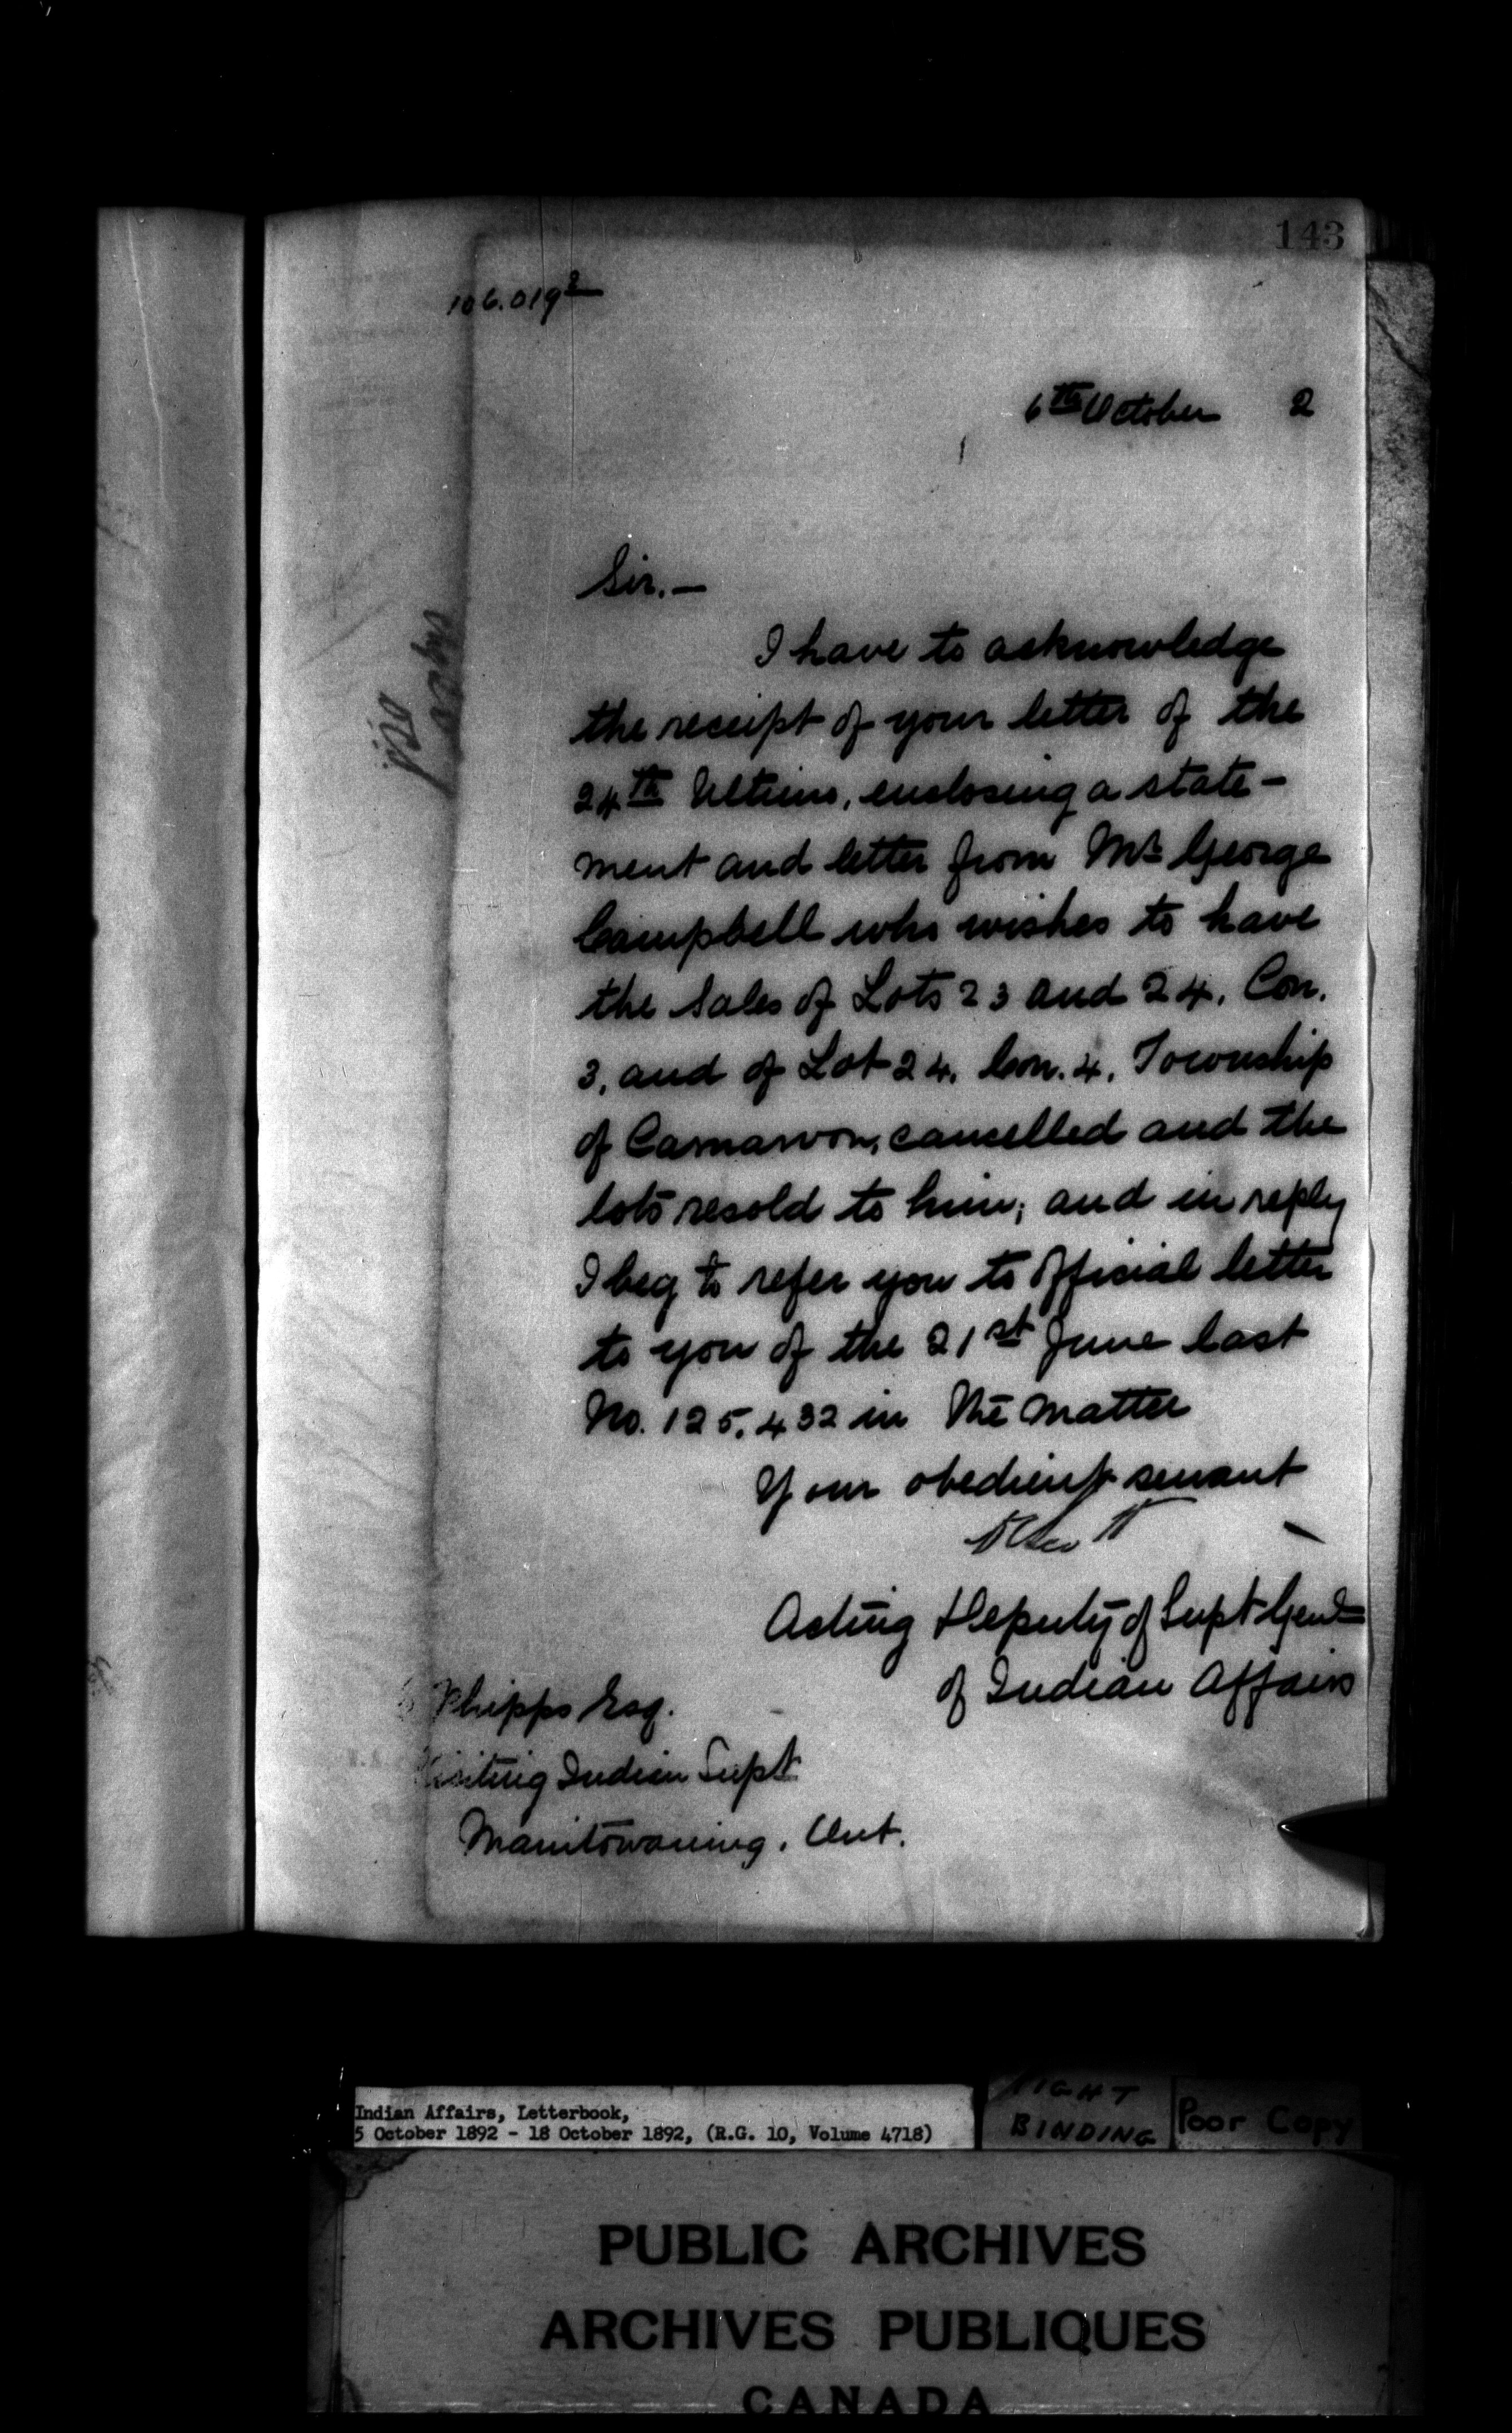 143
106.019²
6th October 2
Sir.—
I have to acknowledge
the receipt of your letter of the
24th Ultimo, enclosing a state-
ment and letter from Mr George
Campbell who wishes to have
the Sales of Lots 23 and 24, Con.
3, and of Lot 24, Con. 4, Township
of Carnarvon, cancelled and the
lots resold to him; and in reply
I beg to refer you to Official letter
to you of the 21st June last
No. 125,432 in the matter
Your obedient servant
Acting Deputy of Supt Genl
of Indian Affairs
Phipps Esq.
Visiting Indian Supt
Manitowaning, Ont.
Indian Affairs, Letterbook,
5 October 1892 - 18 October 1892, (R.G. 10, Volume 4718)
TIGHT
BINDING
Poor Copy
PUBLIC ARCHIVES
ARCHIVES PUBLIQUES
CANADA